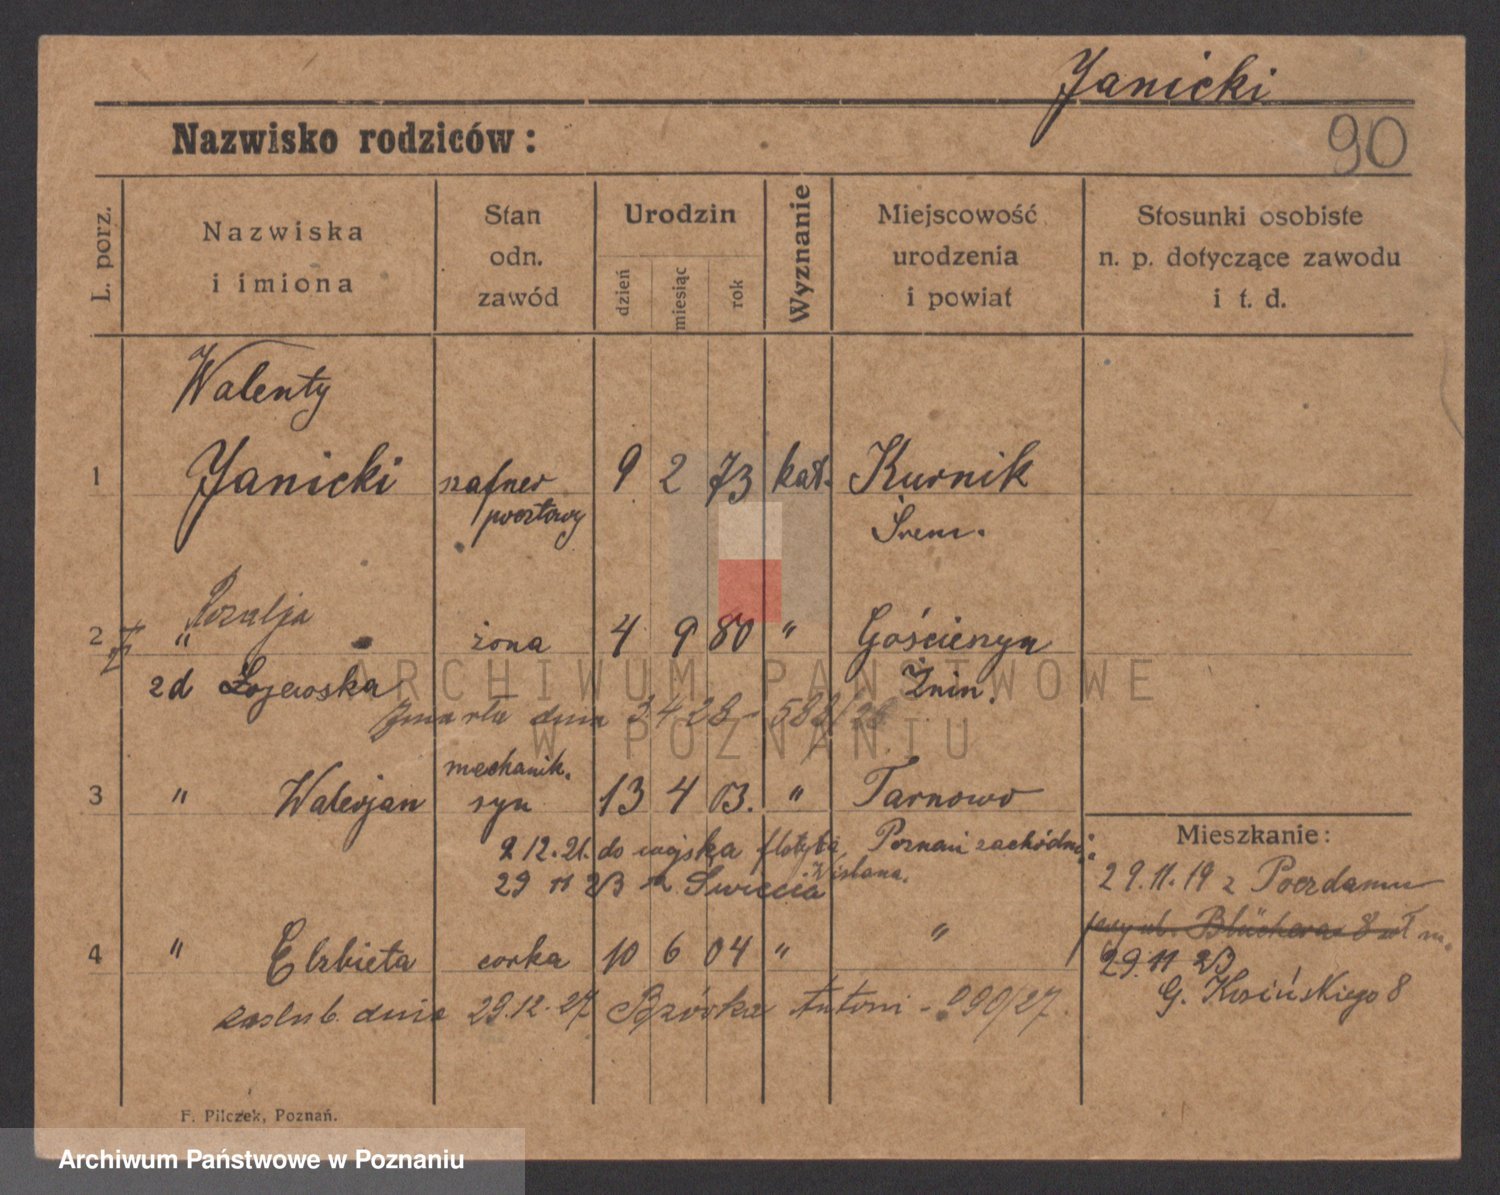 Janicki
Nazwisko rodziców:
90
L. porz.
Nazwiska
i imiona
Stan
odn.
zawód
Urodzin
dzień
miesiąc
rok
Wyznanie
Miejscowość
urodzenia
i powiat
Stosunki osobiste
n. p. dotyczące zawodu
i t. d.
Walenty
1 Janicki szafner 9 2 73 kat. Kurnik
pocztowy Śrem.
Rozalja
2 " żona 4 9 80 " Gościeszyn
zd Łojewska Żnin.
zmarła dnia 3 4 28 - 582/28
mechanik.
3 " Walerjan syn 13 4 03. " Tarnowo
9.12.21. do wojska flotyla Poznań zachódni
Wislana.
29 11 23 z Świecia
4 " Elzbieta corka 10 6 04 " "
zaslub. dnia 29.12.27 Bzówka Antoni - 990/27.
Mieszkanie:
29.11.19 z Poczdamu
ul. Blüchera 8
29.11 23
G. Kosińskiego 8
F. Pilczek, Poznań.
ARCHIWUM PAŃSTWOWE
W POZNANIU
Archiwum Państwowe w Poznaniu